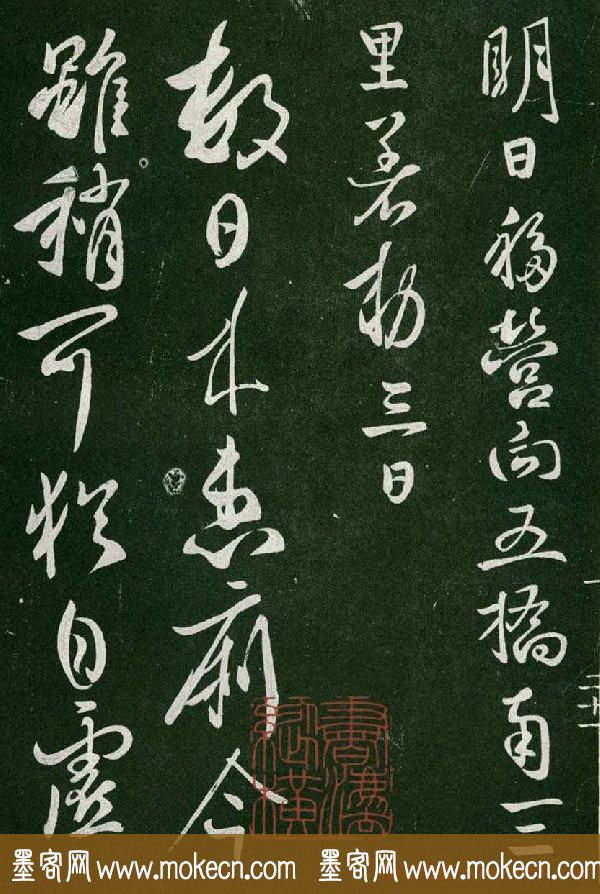 明日移營向五橋南一二
里 勅三日
數日來患痢今
雖稍可猶自虛
墨客网 www.mokecn.com 墨客网 www.mokecn.com